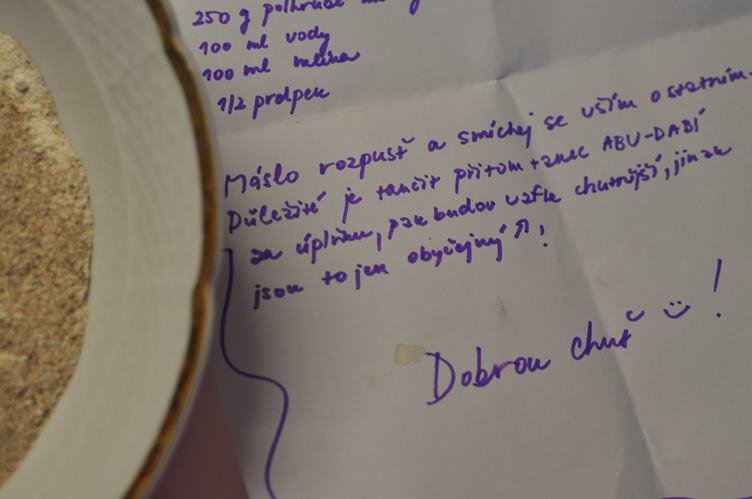 250 g polhrubé
100 ml vody
100 ml mléka
1/2 prdpeč
Máslo rozpusť a smíchej se vším ostatním.
Důležité je tančit přitom tanec ABU-DABÍ
za úplňku, pak budou vafle chutnější, jinak
jsou to jen obyčejný !
Dobrou chuť !